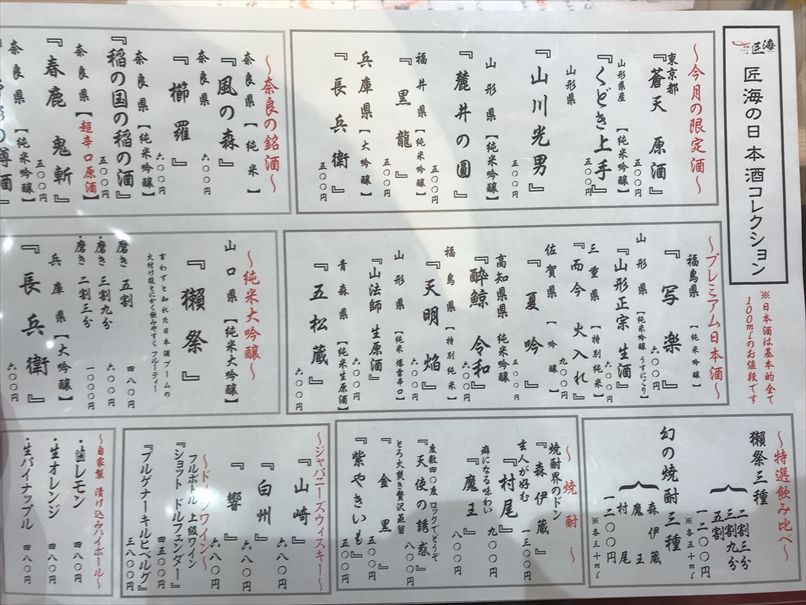 匠海
匠海の日本酒コレクション
※日本酒は基本的全て
100mlのお値段です
～今月の限定酒～
東京都
『蒼天 原酒』
五〇〇円
山形県産
『くどき上手』
五〇〇円
山形県
『山川光男』
五〇〇円
山形県【純米吟醸】
『麓井の圓』
五〇〇円
福井県【純米吟醸】
『黒龍』
五〇〇円
兵庫県【大吟醸】
『長兵衛』
五〇〇円
～奈良の銘酒～
奈良県【純米】
『風の森』
六〇〇円
奈良県【純米吟醸】
『櫛羅』
六〇〇円
奈良県【純米吟醸】
『稲の国の稲の酒』
五〇〇円
奈良県【超辛口原酒】
『春鹿 鬼斬』
五〇〇円
奈良県【純米吟醸】
～プレミアム日本酒～
福島県【純米吟醸】
『写楽』
六〇〇円
山形県【純米吟醸 うすにごり】
『山形正宗 生酒』
六〇〇円
三重県【特別純米】
『而今 火入れ』
九〇〇円
佐賀県【吟醸】
『夏吟』
高知県【純米吟醸】
『酔鯨 令和』
六〇〇円
福島県【特別純米】
『天明 焔』
六〇〇円
山形県【純米 爆雷辛口】
『山法師 生原酒』
六〇〇円
青森県【純米生原酒】
『五松蔵』
六〇〇円
～純米大吟醸～
山口県【純米大吟醸】
『獺祭』
言わずと知れた日本酒ブームの
火付け役とにかく飲みやすく、フルーティー
磨き 五割
四八〇円
・磨き 三割九分
六〇〇円
・磨き 二割三分
一〇〇〇円
兵庫県【大吟醸】
『長兵衛』
六〇〇円
～特選飲み比べ～
獺祭三種
二割三分
三割九分
五割
一二〇〇円
※各五十ml
幻の焼酎三種
森伊蔵
魔王
村尾
一二〇〇円
※各三十ml
～焼酎～
焼酎界のドン
『森伊蔵』
一二〇〇円
玄人が好む
『村尾』
九〇〇円
癖になる味わい
『魔王』
八〇〇円
度数四〇度 ロックでどうぞ
『天使の誘惑』
八〇〇円
とろ火焚き贅沢蒸留
『金黒』
五〇〇円
『紫やきいも』
五〇〇円
～ジャパニーズウィスキー～
『山崎』
六八〇円
『白州』
六八〇円
『響』
六八〇円
～ドイツワイン～
フルボトル 上級ワイン
『ショット ドルフェンダー』
四五〇〇円
『ブルゲナーキルヒベルグ』
三八〇〇円
～自家製 漬け込みハイボール～
・塩レモン
四八〇円
・生オレンジ
四八〇円
・生パイナップル
四八〇円